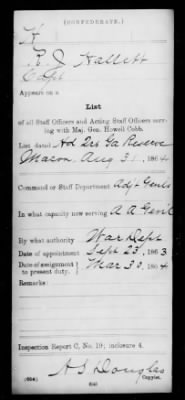 (CONFEDERATE.)
H
R. J. Hallett
Capt
Appears on a
List
of all Staff Officers and Acting Staff Officers serv-
ing with Maj. Gen. Howell Cobb.
List dated Hd Qrs Ga Reserve
Macon, Aug 31, 1864
Command or Staff Department Adjt Genls
In what capacity now serving A A Genl
By what authority War Dept
Date of appointment Sept 23, 1863
Date of assignment to present duty, Mar 30, 1864
Remarks:
Inspection Report C, No. 19; inclosure 4.
A S Douglas
(634) Copyist.